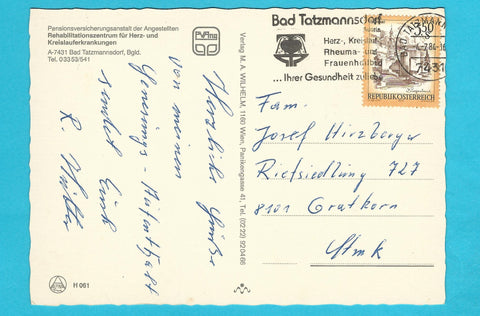 Pensionsversicherungsanstalt der Angestellten
Rehabilitationszentrum für Herz- und
Kreislauferkrankungen
A-7431 Bad Tatzmannsdorf, Bgld.
Tel. 03353/541
Herzliche Grüße
von meinem
Genesungs-Aufenthalt
sendet Euch
R.
H 061
Verlag M. A. WILHELM, 1160 Wien, Panikengasse 41, Tel. (0222) 920466
Bad Tatzmannsdorf
Herz-, Kreislauf
Rheuma-
Frauenheilbad
...Ihrer Gesundheit zuliebe
BAD TATZMANNSDORF
7431
S 3.50
REPUBLIK ÖSTERREICH
Fam.
Josef Hirzberger
Rietsiedlung 727
8101 Gratkorn
Stmk